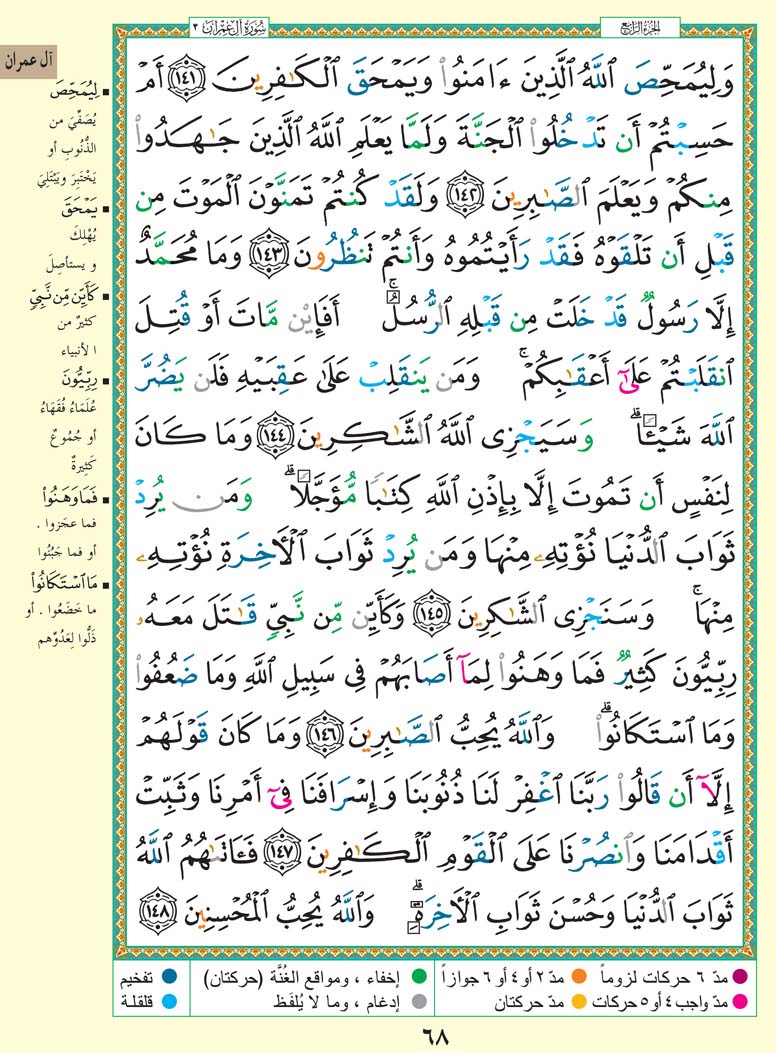 الجزء الرابع
سورة آل عمران ٣
آل عمران
وَلِيُمَحِّصَ ٱللَّهُ ٱلَّذِينَ ءَامَنُوا۟ وَيَمْحَقَ ٱلْكَـٰفِرِينَ ﴿١٤١﴾ أَمْ
حَسِبْتُمْ أَن تَدْخُلُوا۟ ٱلْجَنَّةَ وَلَمَّا يَعْلَمِ ٱللَّهُ ٱلَّذِينَ جَـٰهَدُوا۟
مِنكُمْ وَيَعْلَمَ ٱلصَّـٰبِرِينَ ﴿١٤٢﴾ وَلَقَدْ كُنتُمْ تَمَنَّوْنَ ٱلْمَوْتَ مِن
قَبْلِ أَن تَلْقَوْهُ فَقَدْ رَأَيْتُمُوهُ وَأَنتُمْ تَنظُرُونَ ﴿١٤٣﴾ وَمَا مُحَمَّدٌ
إِلَّا رَسُولٌ قَدْ خَلَتْ مِن قَبْلِهِ ٱلرُّسُلُ ۚ أَفَإِي۟ن مَّاتَ أَوْ قُتِلَ
ٱنقَلَبْتُمْ عَلَىٰٓ أَعْقَـٰبِكُمْ ۚ وَمَن يَنقَلِبْ عَلَىٰ عَقِبَيْهِ فَلَن يَضُرَّ
ٱللَّهَ شَيْـًٔا ۗ وَسَيَجْزِى ٱللَّهُ ٱلشَّـٰكِرِينَ ﴿١٤٤﴾ وَمَا كَانَ
لِنَفْسٍ أَن تَمُوتَ إِلَّا بِإِذْنِ ٱللَّهِ كِتَـٰبًا مُّؤَجَّلًا ۗ وَمَن يُرِدْ
ثَوَابَ ٱلدُّنْيَا نُؤْتِهِۦ مِنْهَا وَمَن يُرِدْ ثَوَابَ ٱلْـَٔاخِرَةِ نُؤْتِهِۦ
مِنْهَا ۚ وَسَنَجْزِى ٱلشَّـٰكِرِينَ ﴿١٤٥﴾ وَكَأَيِّن مِّن نَّبِىٍّ قَـٰتَلَ مَعَهُۥ
رِبِّيُّونَ كَثِيرٌ فَمَا وَهَنُوا۟ لِمَآ أَصَابَهُمْ فِى سَبِيلِ ٱللَّهِ وَمَا ضَعُفُوا۟
وَمَا ٱسْتَكَانُوا۟ ۗ وَٱللَّهُ يُحِبُّ ٱلصَّـٰبِرِينَ ﴿١٤٦﴾ وَمَا كَانَ قَوْلَهُمْ
إِلَّآ أَن قَالُوا۟ رَبَّنَا ٱغْفِرْ لَنَا ذُنُوبَنَا وَإِسْرَافَنَا فِىٓ أَمْرِنَا وَثَبِّتْ
أَقْدَامَنَا وَٱنصُرْنَا عَلَى ٱلْقَوْمِ ٱلْكَـٰفِرِينَ ﴿١٤٧﴾ فَـَٔاتَىٰهُمُ ٱللَّهُ
ثَوَابَ ٱلدُّنْيَا وَحُسْنَ ثَوَابِ ٱلْـَٔاخِرَةِ ۗ وَٱللَّهُ يُحِبُّ ٱلْمُحْسِنِينَ ﴿١٤٨﴾
لِيُمَحِّصَ
يُصَفِّيَ من
الذُّنُوبِ أو
يَخْتَبِرَ ويَبْتَلِيَ
يَمْحَقَ
يُهْلِكَ
و يستأصِلَ
كَأَيِّن مِّن نَّبِىٍّ
كثيرٌ من
الأنبياء
رِبِّيُّونَ
عُلَمَاءُ فُقَهَاءُ
أو جُمُوعٌ
كَثِيرةٌ
فَمَا وَهَنُوا۟
فما عجَزوا .
أو فما جَبُنُوا
مَا ٱسْتَكَانُوا۟
ما خَضَعُوا . أو
ذَلُّوا لِعَدُوِّهم
مدّ ٦ حركات لزوماً
مدّ ٢ أو ٤ أو ٦ جوازاً
إخفاء ، ومواقع الغُنَّة (حركتان)
تفخيم
مدّ واجب ٤ أو ٥ حركات
مدّ حركتان
إدغام ، وما لا يُلفَظ
قلقلة
٦٨